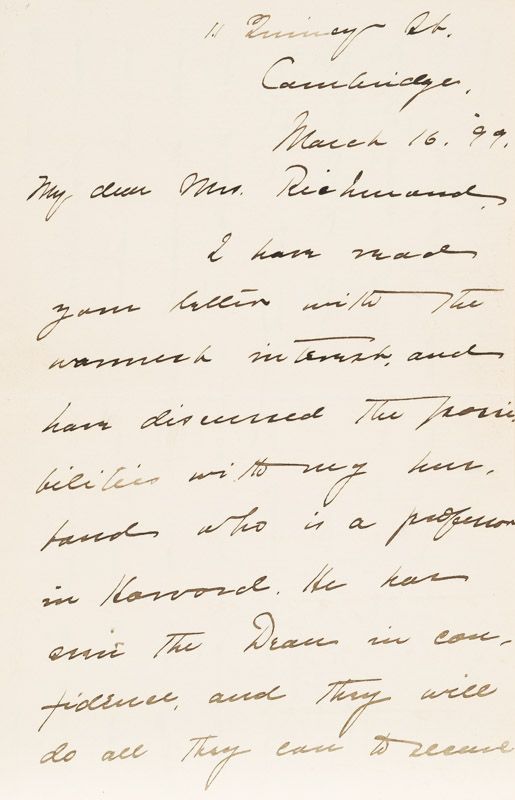 11 Quincy St.
Cambridge,
March 16. '99.
My dear Mrs. Richmond,
I have read
your letter with the
warmest interest, and
have discussed the possi-
bilities with my hus-
band who is a professor
in Harvard. He has
seen the Dean in con-
fidence, and they will
do all they can to secure